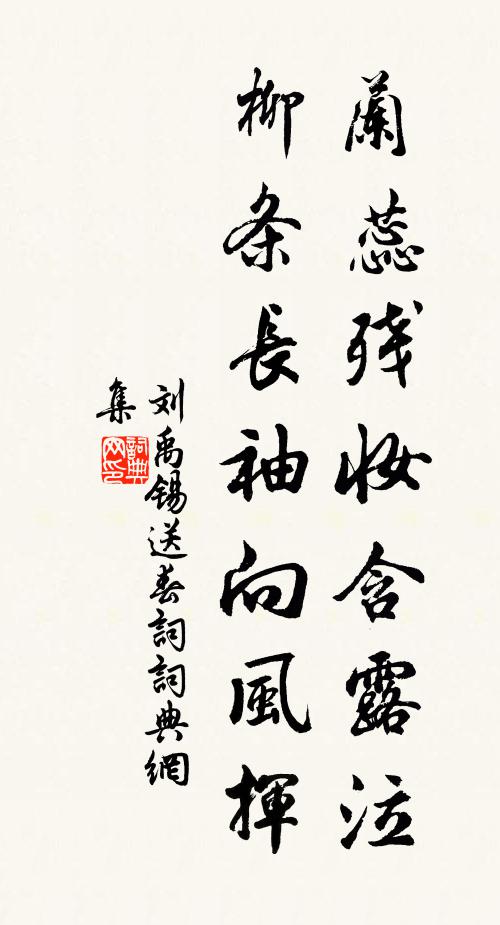 蘭蕊残妆含露泣
柳条長袖向風揮
刘禹锡送春詞詞典網
集
詞典网印